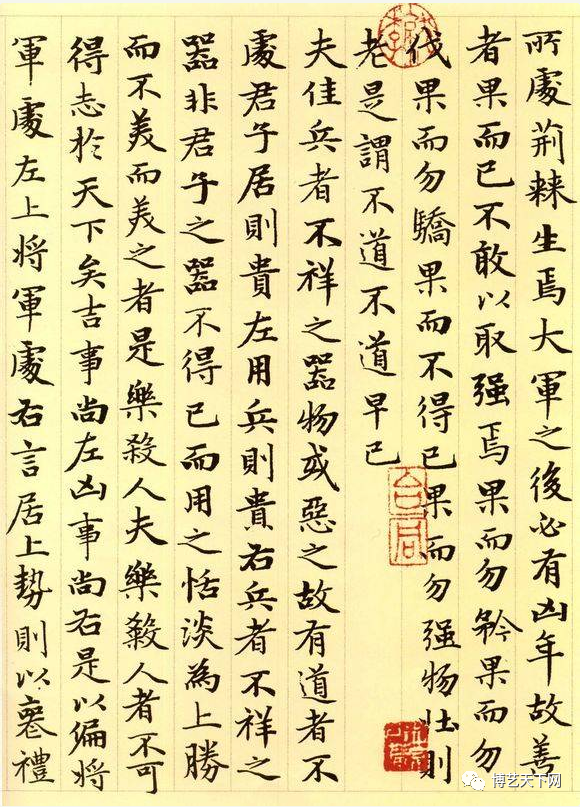 所處荆棘生焉大軍之後必有凶年故善
者果而已不敢以取强焉果而勿矜果而勿
伐果而勿驕果而不得已果而勿强物壯則
老是謂不道不道早已
夫佳兵者不祥之器物或惡之故有道者不
處君子居則貴左用兵則貴右兵者不祥之
器非君子之器不得已而用之恬淡為上勝
而不美而美之者是樂殺人夫樂殺人者不可
得志於天下矣吉事尚左凶事尚右是以偏將
軍處左上將軍處右言居上勢則以喪禮
博艺天下网